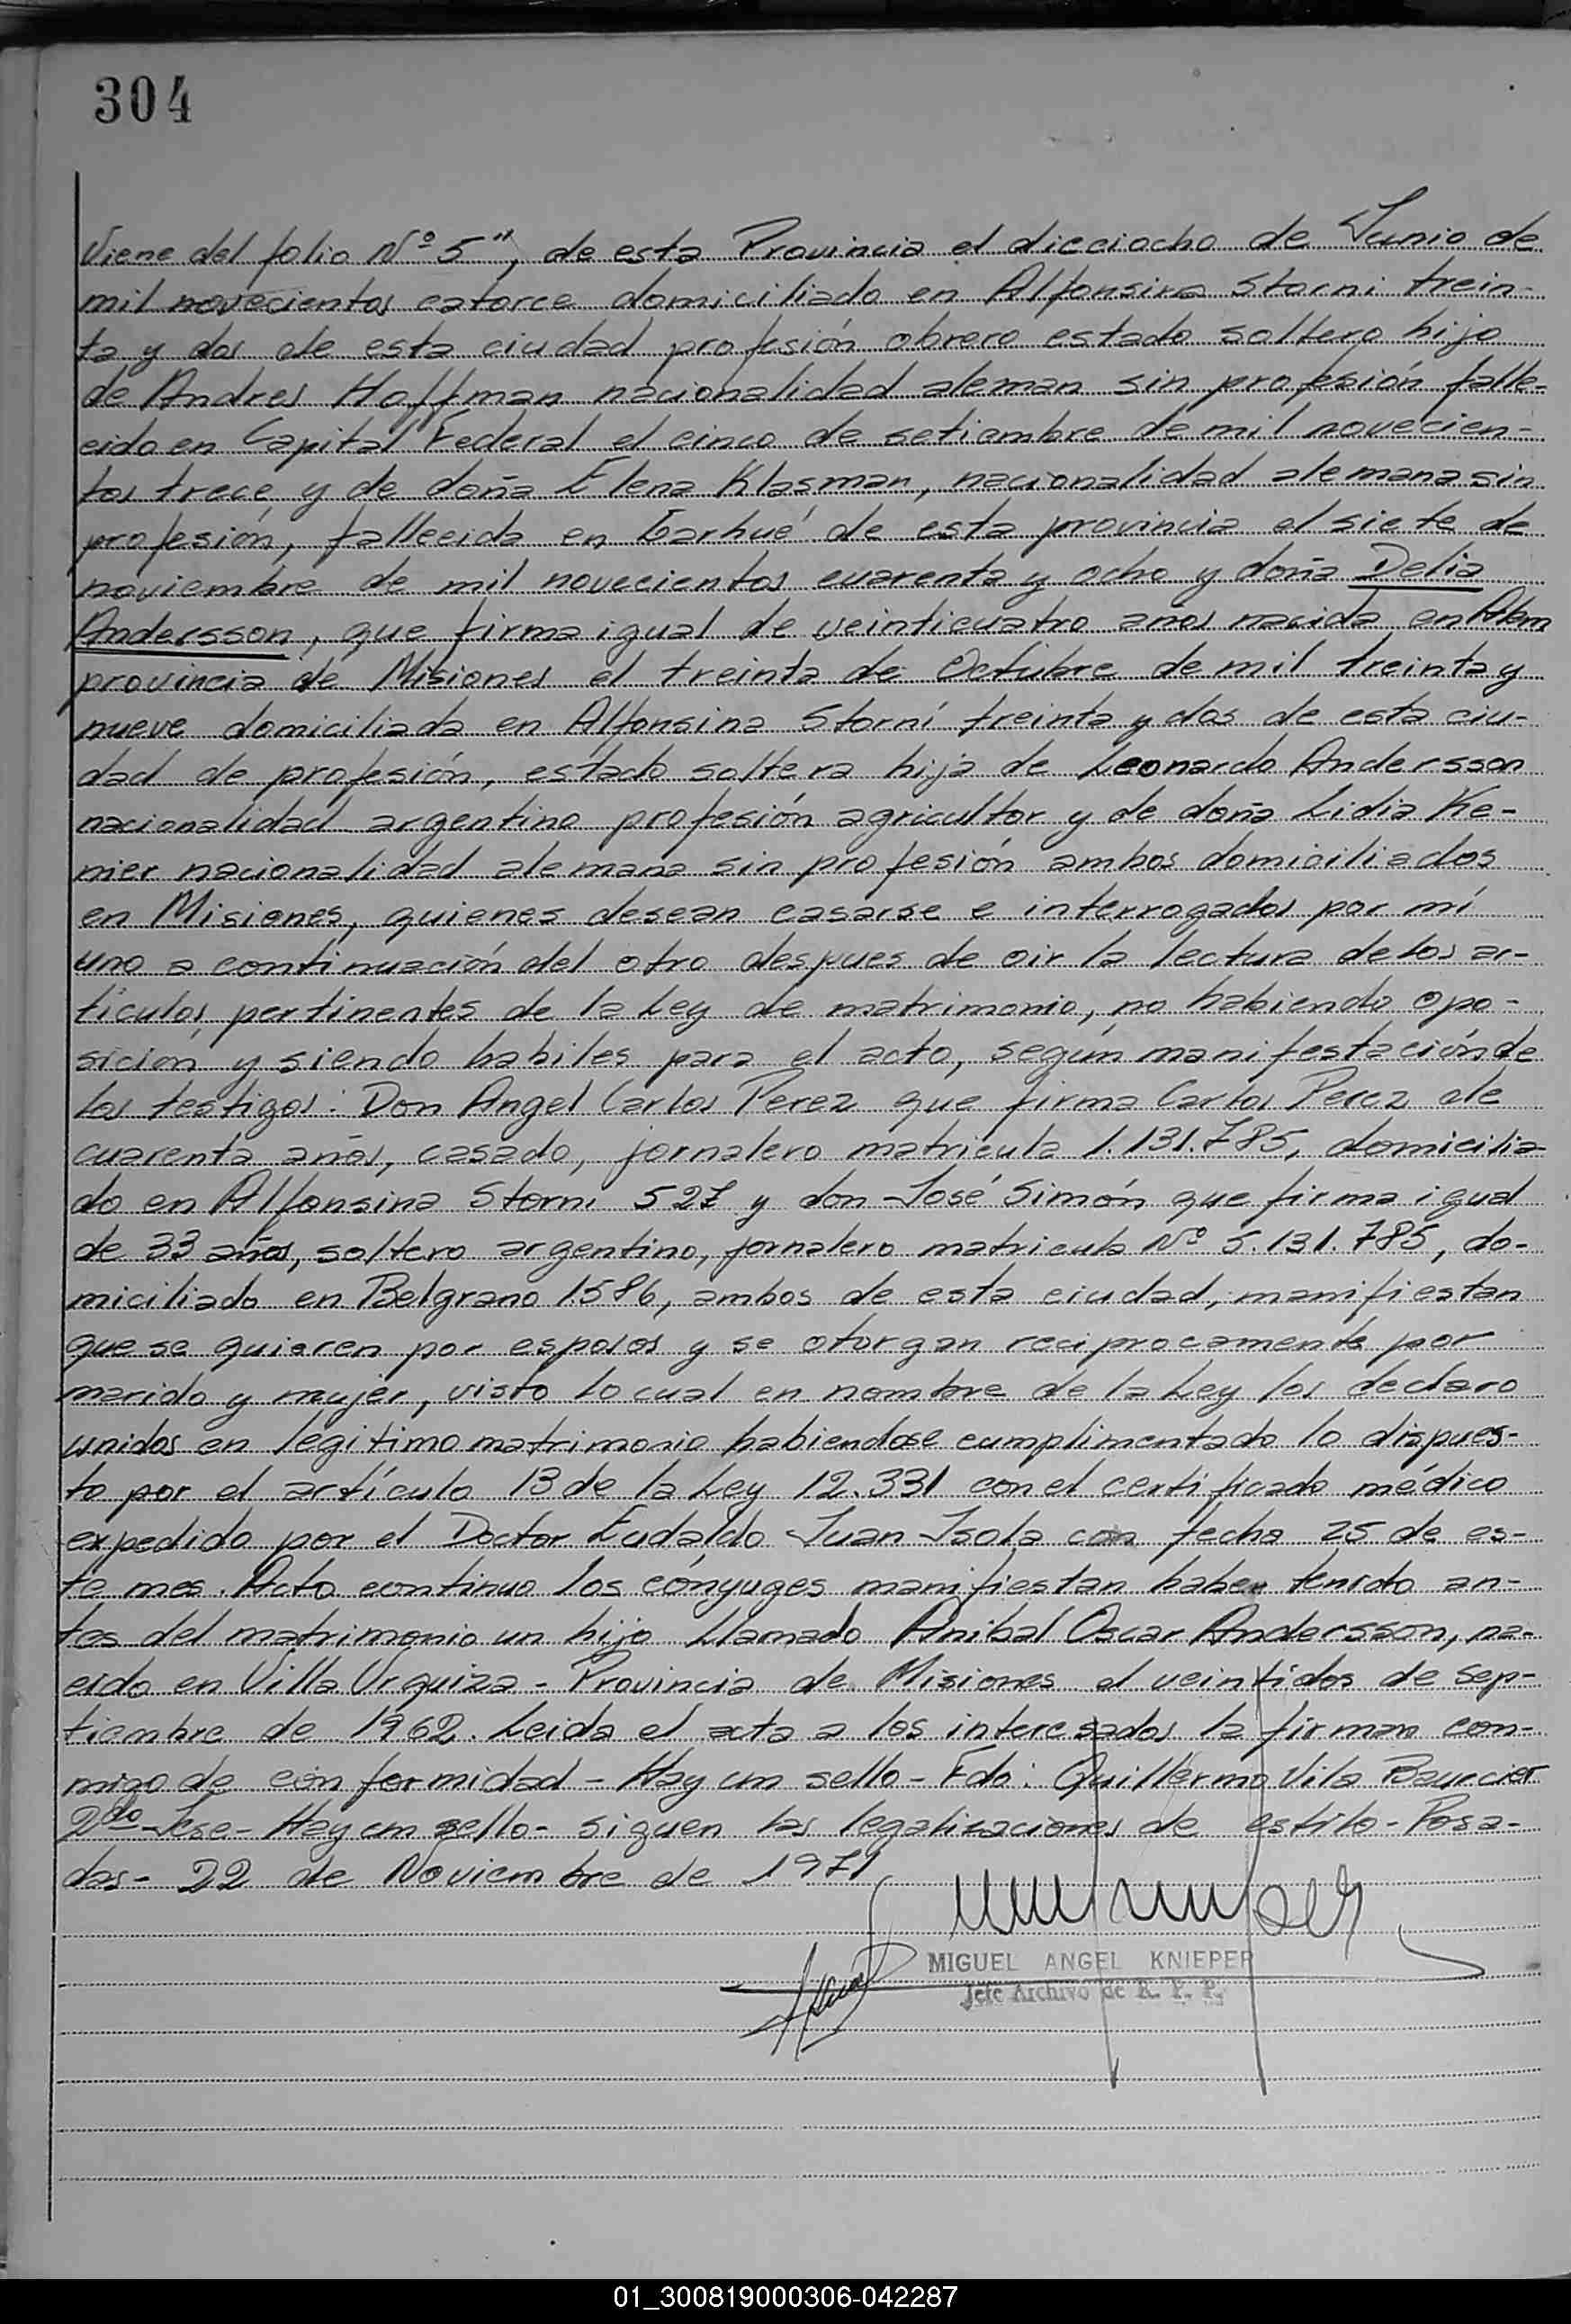 304
Viene del folio Nº 5", de esta Provincia el dieciocho de Junio de
mil novecientos catorce domiciliado en Alfonsina Storni trein-
ta y dos de esta ciudad profesión obrero estado soltero hijo
de Andres Hoffman nacionalidad aleman sin profesión falle-
cido en Capital Federal el cinco de setiembre de mil novecien-
tos trece y de doña Elena Klasman, nacionalidad alemana sin
profesión, fallecida en Carhué de esta provincia el siete de
noviembre de mil novecientos cuarenta y ocho y doña Delia
Andersson, que firma igual de veinticuatro años nacida en Alem
provincia de Misiones el treinta de Octubre de mil treinta y
nueve domiciliada en Alfonsina Storni treinta y dos de esta ciu-
dad de profesión, estado soltera hija de Leonardo Andersson
nacionalidad argentino profesión agricultor y de doña Lidia Ke-
nier nacionalidad alemana sin profesión ambos domiciliados
en Misiones, quienes desean casarse e interrogados por mí
uno a continuación del otro despues de oir la lectura de los ar-
tículos pertinentes de la Ley de matrimonio, no habiendo opo-
sición y siendo habiles para el acto, según manifestación de
los testigos: Don Angel Carlos Perez que firma Carlos Perez de
cuarenta años, casado, jornalero matrícula 1.131.785, domicilia-
do en Alfonsina Storni 527 y don José Simón que firma igual
de 33 años, soltero argentino, jornalero matricula Nº 5.131.785, do-
miciliado en Belgrano 1586, ambos de esta ciudad, manifiestan
que se quieren por esposos y se otorgan reciprocamente por
marido y mujer, visto lo cual en nombre de la Ley los declaro
unidos en legitimo matrimonio habiendose cumplimentado lo dispues-
to por el artículo 13 de la Ley 12.331 con el certificado médico
expedido por el Doctor Eudaldo Juan Isola con fecha 25 de es-
te mes. Acto continuo los cónyuges manifiestan haber tenido an-
tes del matrimonio un hijo llamado Anibal Oscar Andersson, na-
cido en Villa Urquiza - Provincia de Misiones el veintidos de Sep-
tiembre de 1962. Leida el acta a los interesados la firman con-
migo de conformidad - Hay un sello - Fdo: Guillermo Vila
2do Jefe - Hay un sello - siguen las legalizaciones de estilo - Posa-
das - 22 de Noviembre de 1971
MIGUEL ANGEL KNIEPER
Jefe Archivo de R. P. P.
01_300819000306-042287